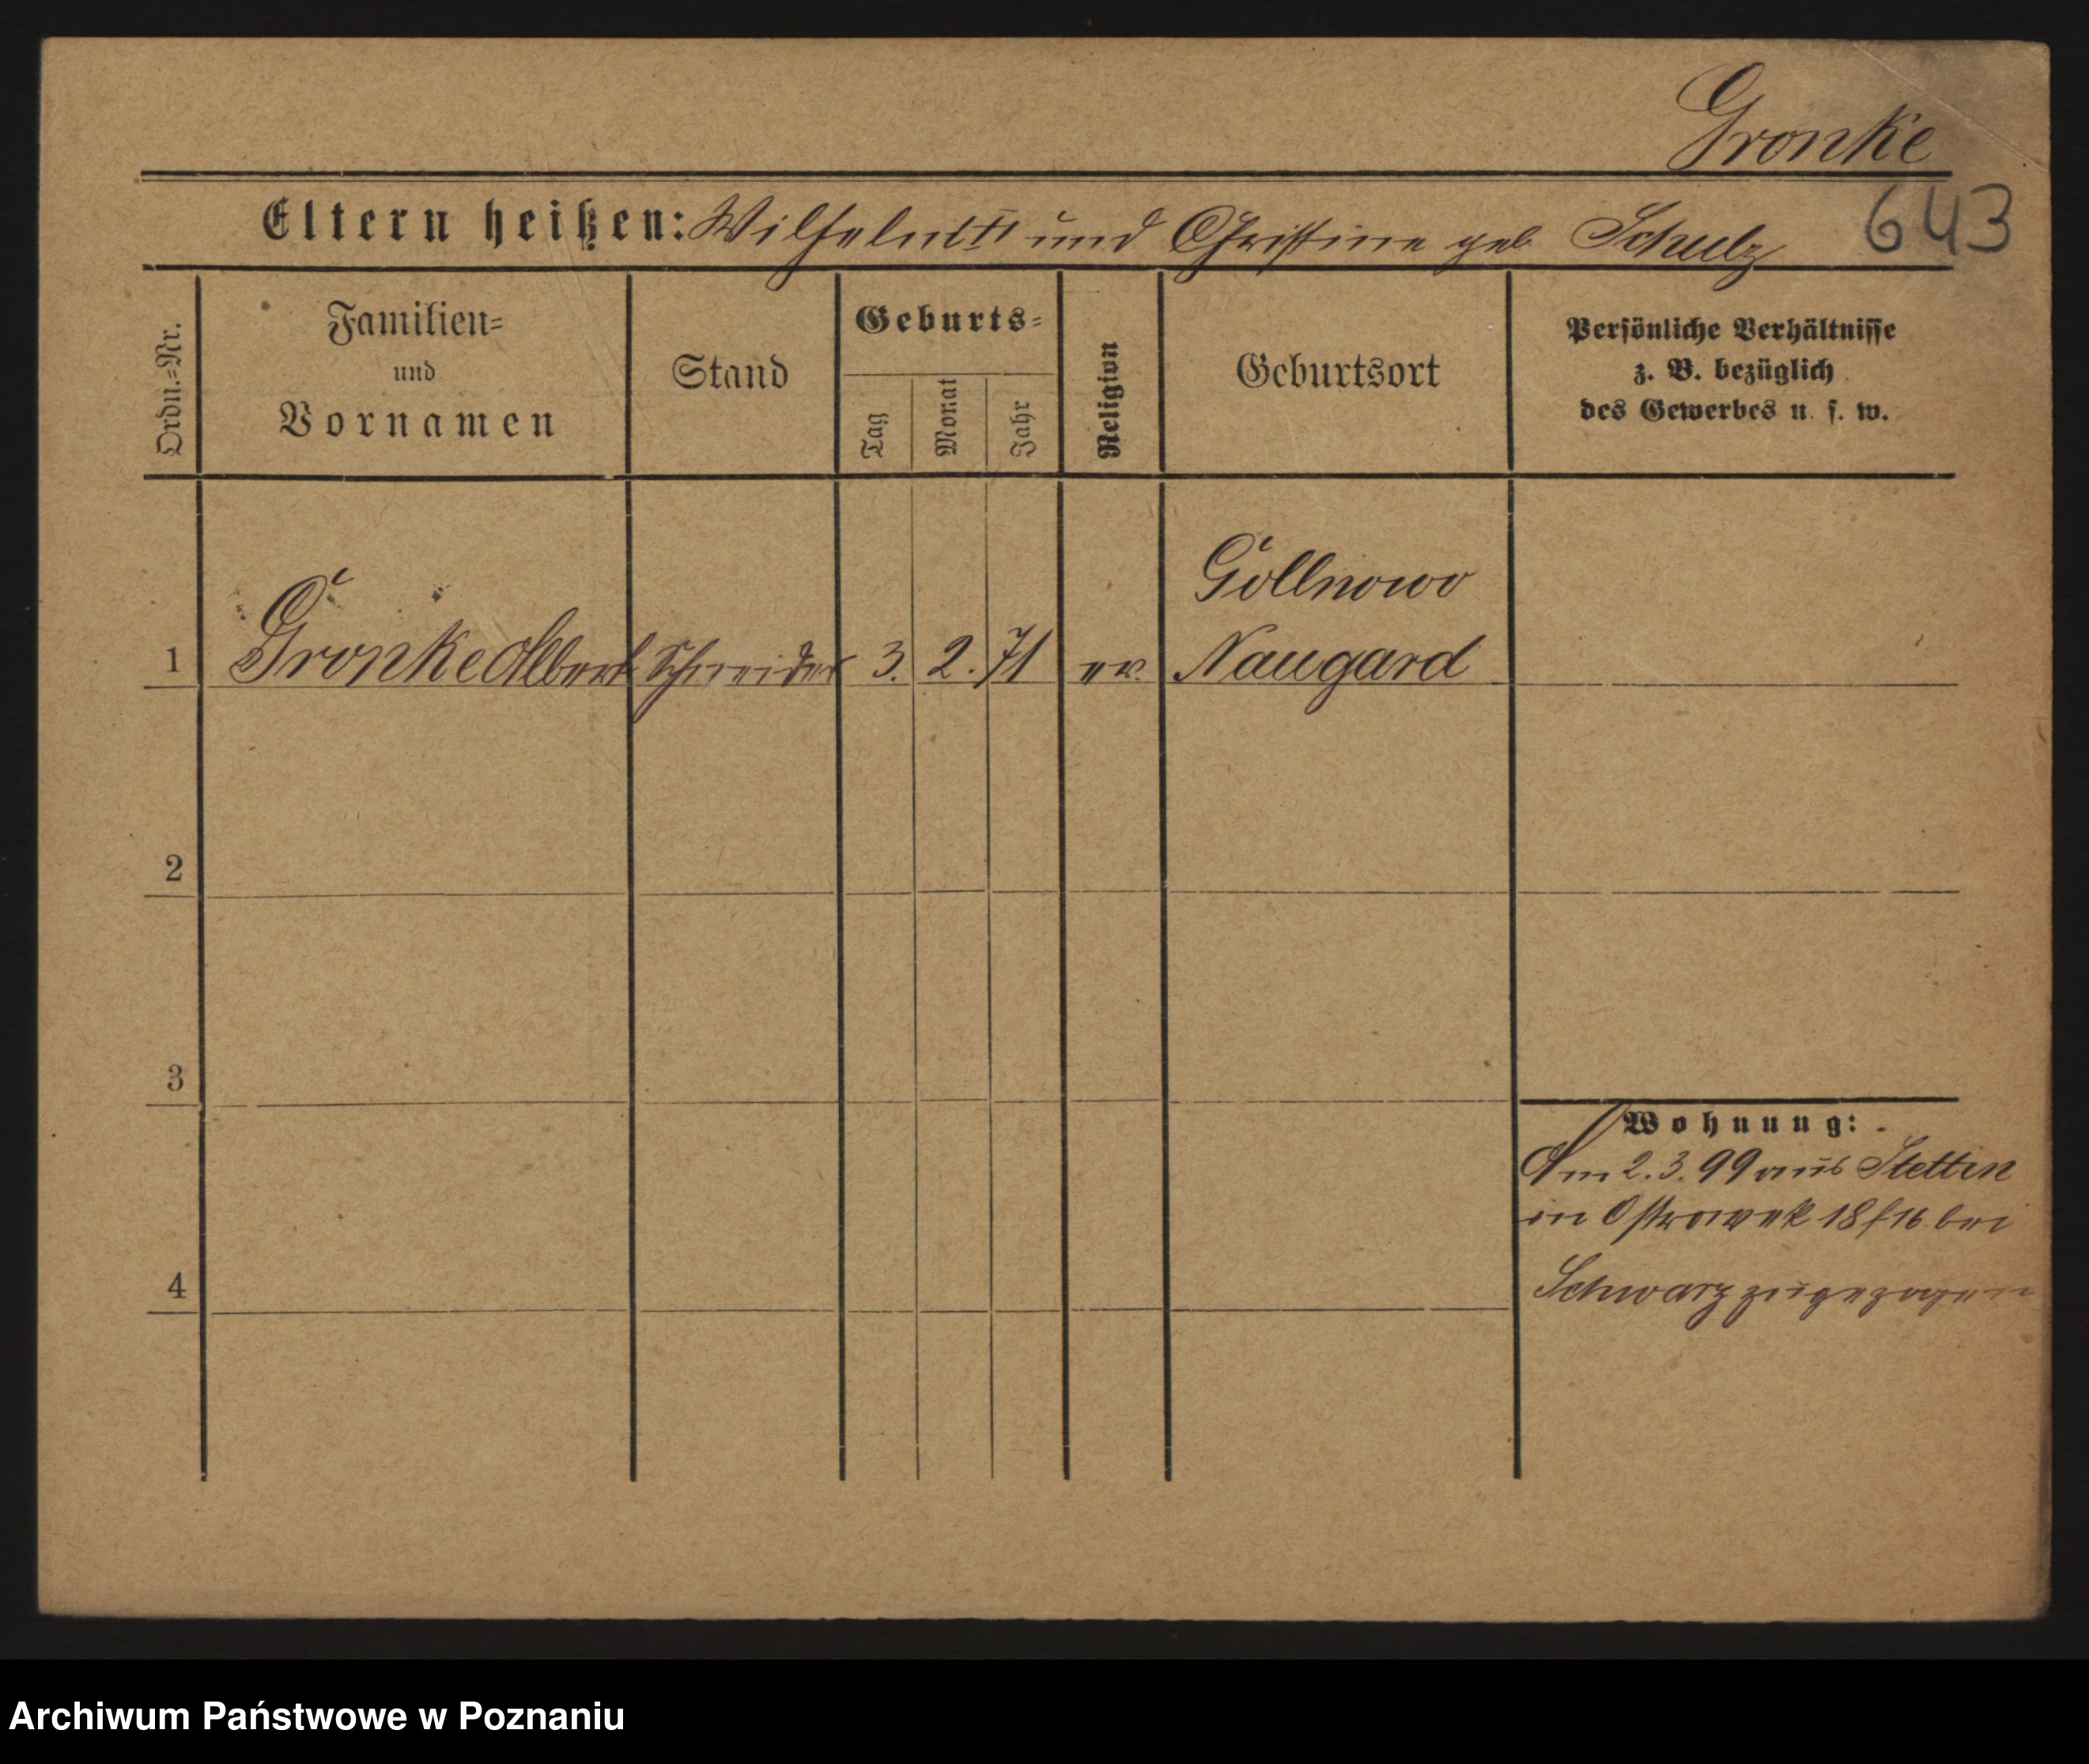 Gronke
643
Eltern heißen: Wilhelm und Christine geb Schulz
Ordn.=Nr.
Familien=
und
Vornamen
Stand
Geburts=
Tag
Monat
Jahr
Religion
Geburtsort
Persönliche Verhältnisse
z. B. bezüglich
des Gewerbes u. s. w.
Gollnowo
1 Gronke Albert Schneider 3. 2. 71 ev. Naugard
2
3
Wohnung:
Am 2. 3. 99 aus Stettin
in Ostrowek 18/16 bei
4
Schwarz zugezogen
Archiwum Państwowe w Poznaniu